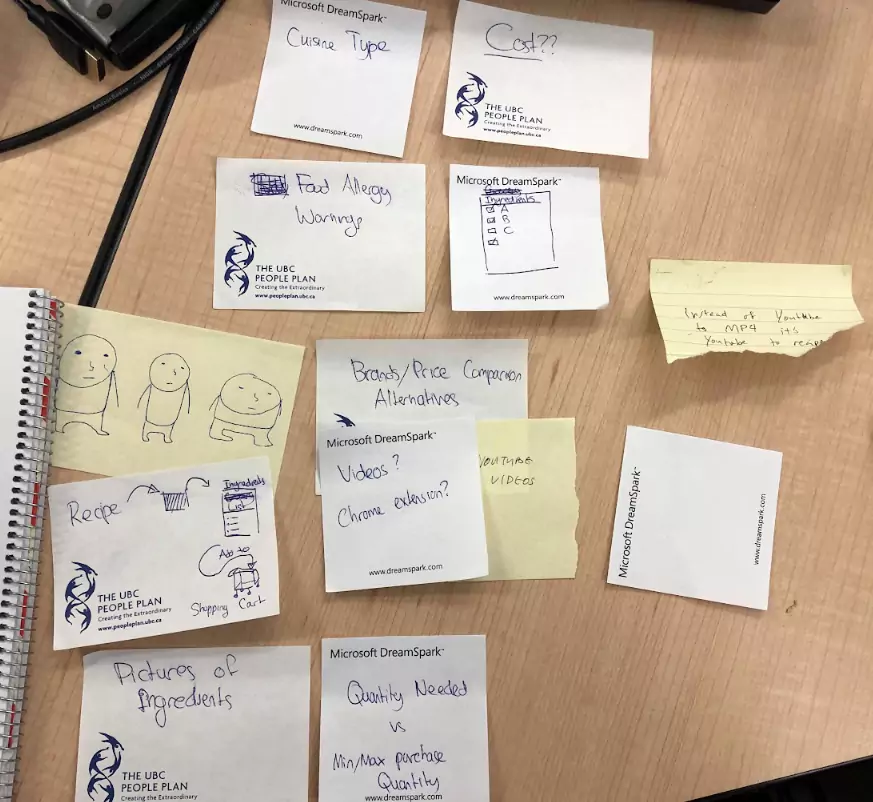 Microsoft DreamSpark™
Cuisine Type
www.dreamspark.com
Cost??
THE UBC
PEOPLE PLAN
Creating the Extraordinary
www.peopleplan.ubc.ca
Food Allergy
Warnings
THE UBC
PEOPLE PLAN
Creating the Extraordinary
www.peopleplan.ubc.ca
Microsoft DreamSpark™
Ingredients
A
B
C
www.dreamspark.com
Instead of Youtube
to MP4 its
Youtube to
Brands/Price Comparison
Alternatives
Microsoft DreamSpark™
Videos?
Chrome extension?
www.dreamspark.com
YOUTUBE
VIDEOS
Microsoft DreamSpark™
www.dreamspark.com
Recipe
Ingredients
List
Add to
Shopping Cart
THE UBC
PEOPLE PLAN
Creating the Extraordinary
www.peopleplan.ubc.ca
Pictures of
Ingredients
THE UBC
PEOPLE PLAN
Creating the Extraordinary
Microsoft DreamSpark™
Quantity Needed
vs
Min/Max purchase
Quantity
www.dreamspark.com